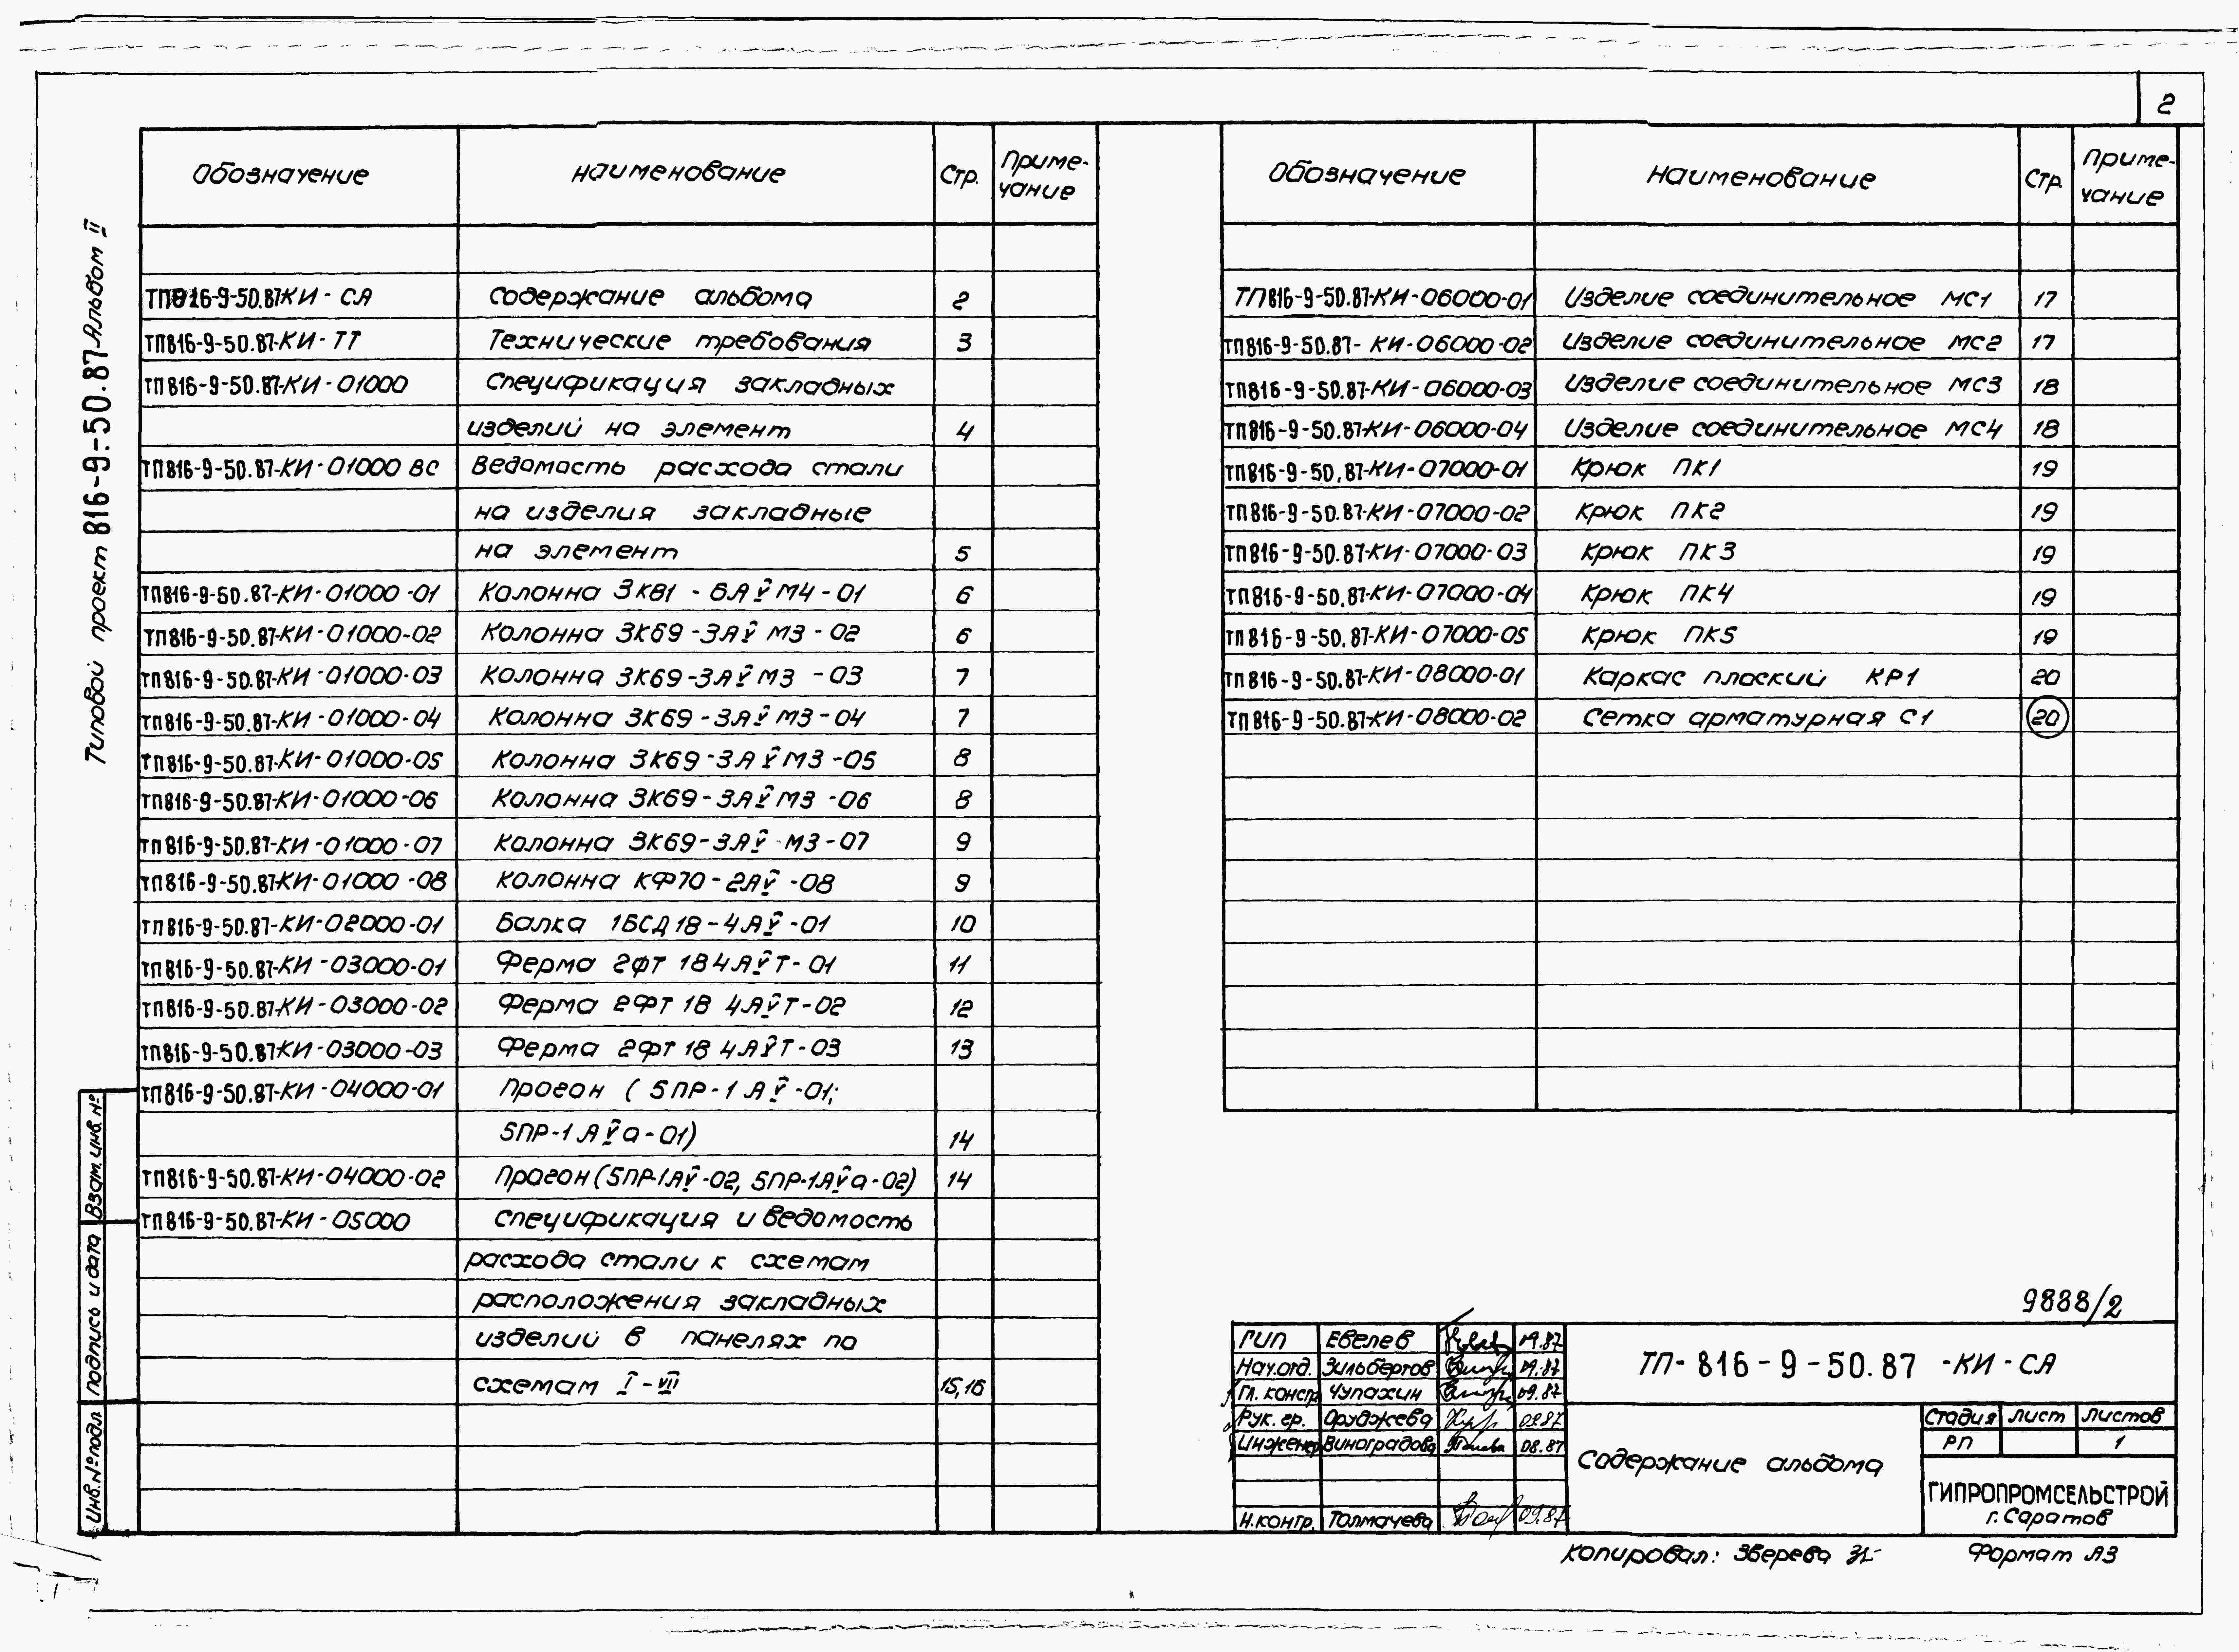 2
Типовой проект 816-9-50.87-Альбом II
Обозначение Наименование Стр. Приме-
чание
ТП816-9-50.87-КИ-СА Содержание альбома 2
ТП816-9-50.87-КИ-ТТ Технические требования 3
ТП816-9-50.87-КИ-01000 Спецификация закладных
изделий на элемент 4
ТП816-9-50.87-КИ-01000 ВС Ведомость расхода стали
на изделия закладные
на элемент 5
ТП816-9-50.87-КИ-01000-01 Колонна 3К81-6АV М4-01 6
ТП816-9-50.87-КИ-01000-02 Колонна 3К69-3АV М3-02 6
ТП816-9-50.87-КИ-01000-03 Колонна 3К69-3АV М3-03 7
ТП816-9-50.87-КИ-01000-04 Колонна 3К69-3АV М3-04 7
ТП816-9-50.87-КИ-01000-05 Колонна 3К69-3АV М3-05 8
ТП816-9-50.87-КИ-01000-06 Колонна 3К69-3АV М3-06 8
ТП816-9-50.87-КИ-01000-07 Колонна 3К69-3АV М3-07 9
ТП816-9-50.87-КИ-01000-08 Колонна КФ70-2АV-08 9
ТП816-9-50.87-КИ-02000-01 Балка 1БСД18-4АV-01 10
ТП816-9-50.87-КИ-03000-01 Ферма 2ФТ 18 4АVТ-01 11
ТП816-9-50.87-КИ-03000-02 Ферма 2ФТ 18 4АVТ-02 12
ТП816-9-50.87-КИ-03000-03 Ферма 2ФТ 18 4АVТ-03 13
ТП816-9-50.87-КИ-04000-01 Прогон (5ПР-1 АV-01;
5ПР-1 АVа-01) 14
ТП816-9-50.87-КИ-04000-02 Прогон (5ПР-1АV-02, 5ПР-1АVа-02) 14
ТП816-9-50.87-КИ-05000 Спецификация и ведомость
расхода стали к схемам
расположения закладных
изделий в панелях по
схемам I-VII 15,16
Обозначение Наименование Стр. Приме-
чание
ТП816-9-50.87-КИ-06000-01 Изделие соединительное МС1 17
ТП816-9-50.87-КИ-06000-02 Изделие соединительное МС2 17
ТП816-9-50.87-КИ-06000-03 Изделие соединительное МС3 18
ТП816-9-50.87-КИ-06000-04 Изделие соединительное МС4 18
ТП816-9-50.87-КИ-07000-01 Крюк ПК1 19
ТП816-9-50.87-КИ-07000-02 Крюк ПК2 19
ТП816-9-50.87-КИ-07000-03 Крюк ПК3 19
ТП816-9-50.87-КИ-07000-04 Крюк ПК4 19
ТП816-9-50.87-КИ-07000-05 Крюк ПК5 19
ТП816-9-50.87-КИ-08000-01 Каркас плоский КР1 20
ТП816-9-50.87-КИ-08000-02 Сетка арматурная С1 20
Взам. инв. №
Подпись и дата
Инв. № подл
9888/2
ГИП Евелев 09.87
Нач.отд. Зильбертов 09.87
Гл. констр Чупахин 09.87
Рук. гр. Оруджева 09.87
Инженер Виноградова 08.87
Н.контр. Толмачева 09.87
ТП-816-9-50.87-КИ-СА
Содержание альбома
Стадия Лист Листов
РП 1
ГИПРОПРОМСЕЛЬСТРОЙ
г. Саратов
Копировал: Зверева
Формат А3